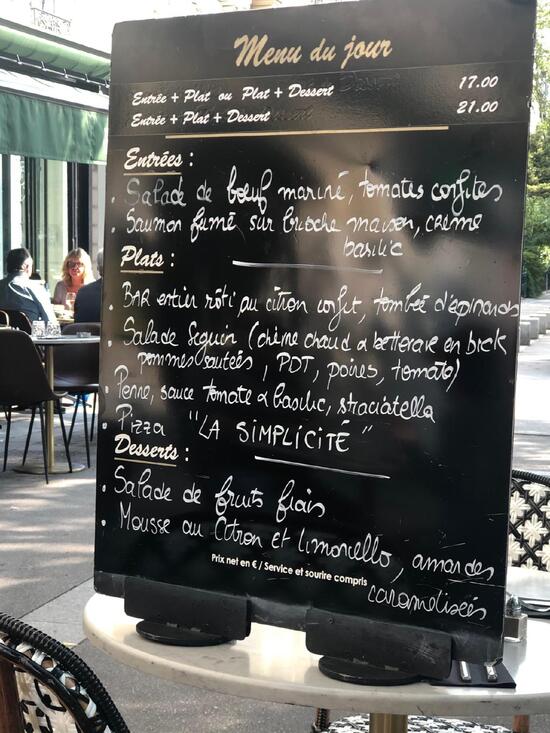 Menu du jour
Entrée + Plat ou Plat + Dessert 17.00
Entrée + Plat + Dessert 21.00
Entrées :
• Salade de bœuf mariné, tomates confites
• Saumon fumé sur brioche maison, crème
basilic
Plats :
• BAR entier rôti au citron confit, tombée d'épinards
• Salade Seguin (chèvre chaud & betterave en brick
pommes sautées, PDT, poires, tomate)
• Penne, sauce tomate & basilic, straciatella
• Pizza "LA SIMPLICITÉ"
Desserts :
• Salade de fruits frais
• Mousse au Citron et limoncello, amandes
caramelisées
Prix net en € / Service et sourire compris